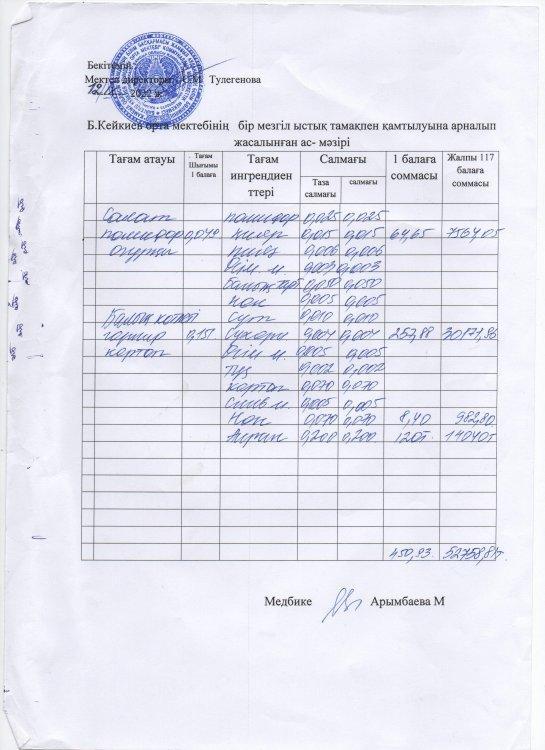 Бекітемін:
Мектеп директоры: С.М. Тулегенова
2022 ж
Б.Кейкиев орта мектебінің бір мезгіл ыстық тамақпен қамтылуына арналып
жасалынған ас- мәзірі
Тағам атауы Тағам Шығымы 1 балаға Тағам ингрендиен ттері Салмағы 1 балаға соммасы Жалпы 117 балаға соммасы
Таза салмағы салмағы
Салат помидор 0,025 0,025
помидор 0,049 кияр 0,015 0,015 64,65 7564,05
огурцы пияз 0,006 0,006
Өсім м. 0,003 0,003
балық 0,050 0,050
нан 0,005 0,005
Балық котлеті сүт 0,010 0,010
гарнир 0,151 Сухари 0,004 0,004 257,88 30171,96
картоп Өсім м. 0,005 0,005
тұз 0,002 0,002
картоп 0,070 0,070
Слив м. 0,005 0,005
Нан 0,070 0,070 8,40 982,80
Айран 0,200 0,200 120т. 14040т
450,93 52758,81т
Медбике Арымбаева М